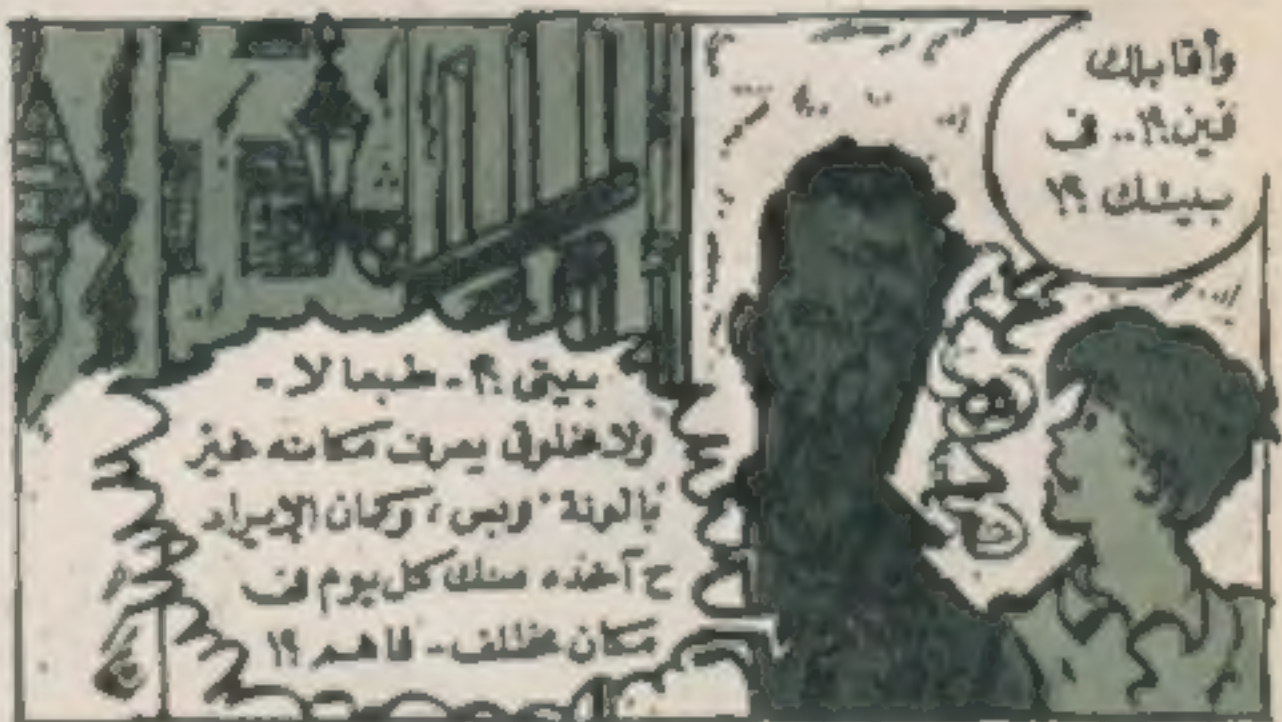 وأقابلك
فين؟!.. ف
بيتك ؟!
بيتى ؟!- طبعا لا -
ولا مخلوق يعرف مكانه غير
بالونة وبس، وكمان الإيراد
ح آخذه منك كل يوم ف
مكان مختلف - فاهم ؟!